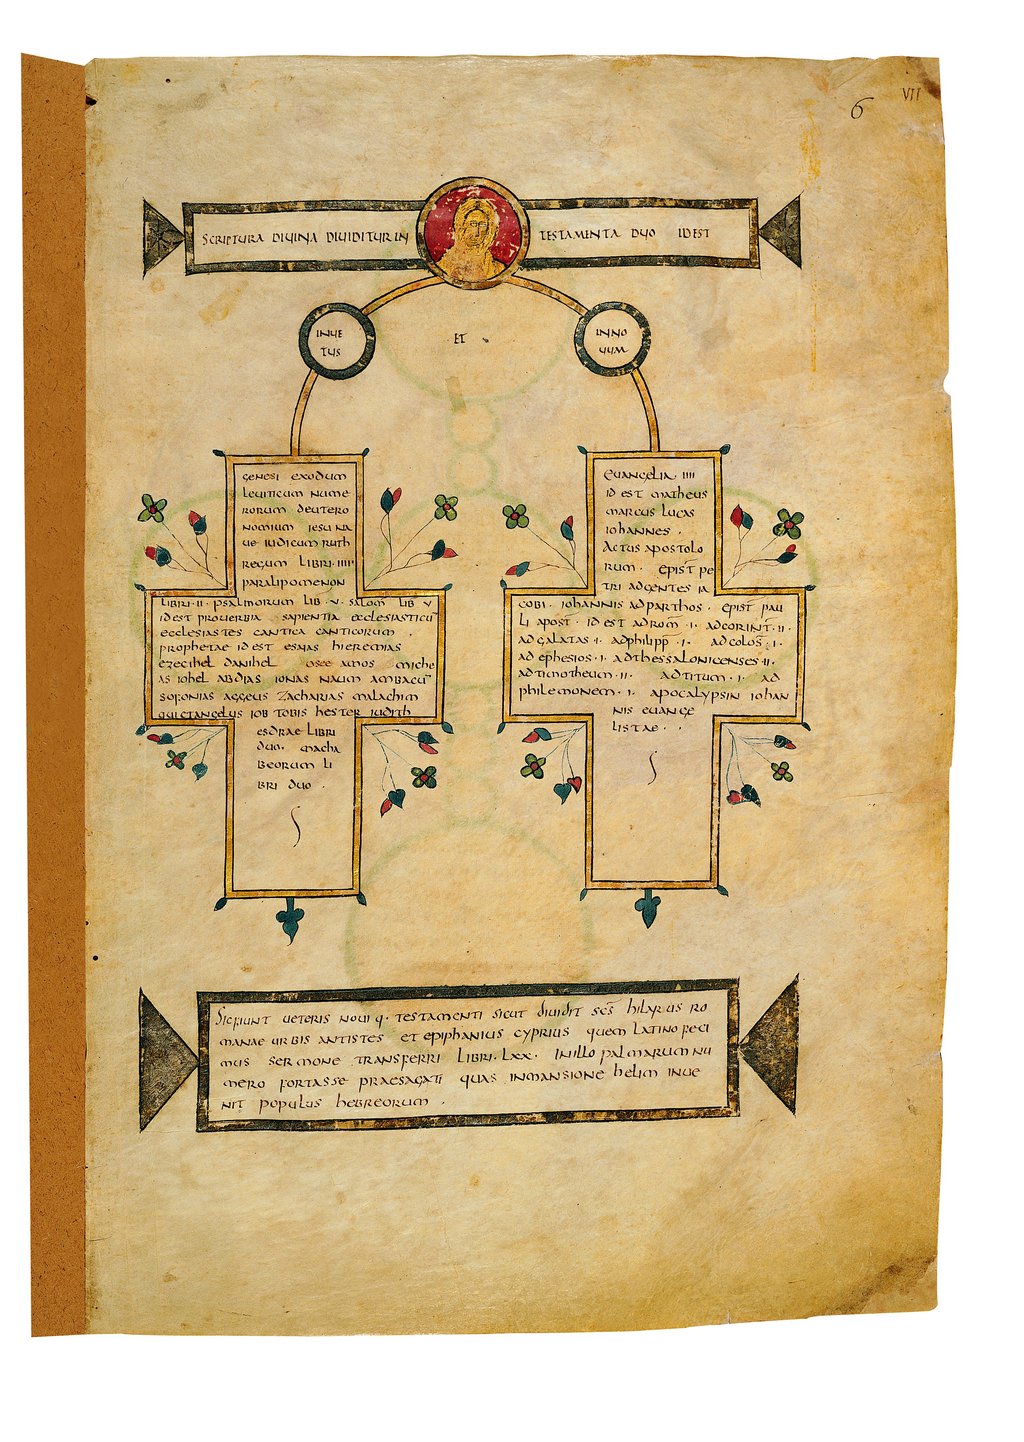 6 VII
SCRIPTURA DIUINA DIUIDITUR IN TESTAMENTA DUO IDEST
INUE
TUS
ET
INNO
UUM
GENESI EXODUM
LEUITICUM NUME
RORUM DEUTERO
NOMIUM IESU NA
UE IUDICUM RUTH
REGUM LIBRI · IIII
PARALIPOMENON
LIBRI · II · PSALMORUM LIB · V · SALOM LIB V
IDEST PROUERBIA SAPIENTIA ECCLESIASTICU
ECCLESIASTES CANTICA CANTICORUM ·
PROPHETAE IDEST ESAIAS HIEREMIAS
EZECIHEL DANIHEL OSEE AMOS MICHE
AS IOHEL ABDIAS IONAS NAUM AMBACU
SOFONIAS AGGEUS ZACHARIAS MALACHIM
QUIETANGELUS IOB TOBIS HESTER IUDITH
ESDRAE LIBRI
DUO · MACHA
BEORUM LI
BRI DUO ·
EUANGELIA IIII
ID EST MATHEUS
MARCUS LUCAS
IOHANNES ·
ACTUS APOSTOLO
RUM · EPIST PE
TRI ADGENTES IA
COBI · IOHANNIS ADPARTHOS · EPIST PAU
LI APOST · IDEST ADROM · I · ADCORINT · II ·
ADGALATAS · I · ADPHILIPP · I · ADCOLOS · I ·
ADEPHESIOS · I · ADTHESSALONICENSES · II ·
ADTIMOTHEUM · II · ADTITUM · I · AD
PHILEMONEM · I · APOCALYPSIN IOHAN
NIS EUANGE
LISTAE ·
SICFIUNT UETERIS NOUIQ · TESTAMENTI SICUT DIUIDIT SCS HILARUS RO
MANAE URBIS ANTISTES ET EPIPHANIUS CYPRIUS QUEM LATINO FECI
MUS SERMONE TRANSFERRI LIBRI · LXX · INILLO PALMARUM NU
MERO FORTASSE PRAESAGATI QUAS INMANSIONE HELIM INUE
NIT POPULUS HEBREORUM ·